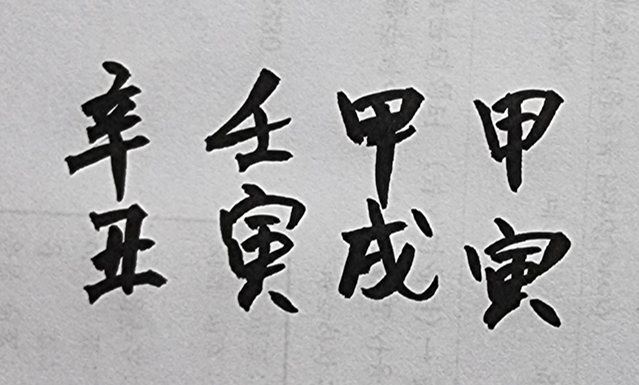 甲寅
甲戌
壬寅
辛丑